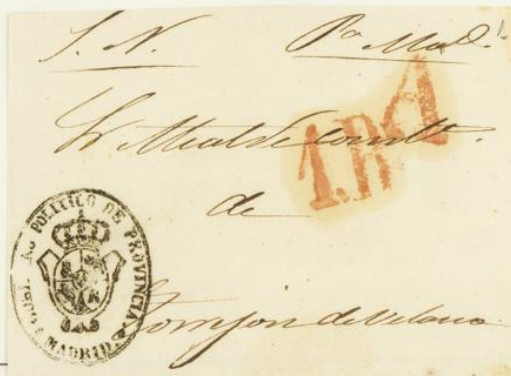 S. N. Pº Mad.
Sr. Alcalde Const.
1 R 4
de
POLITICO DE PROVINCIA
MADRID
Torrejon de Velasco